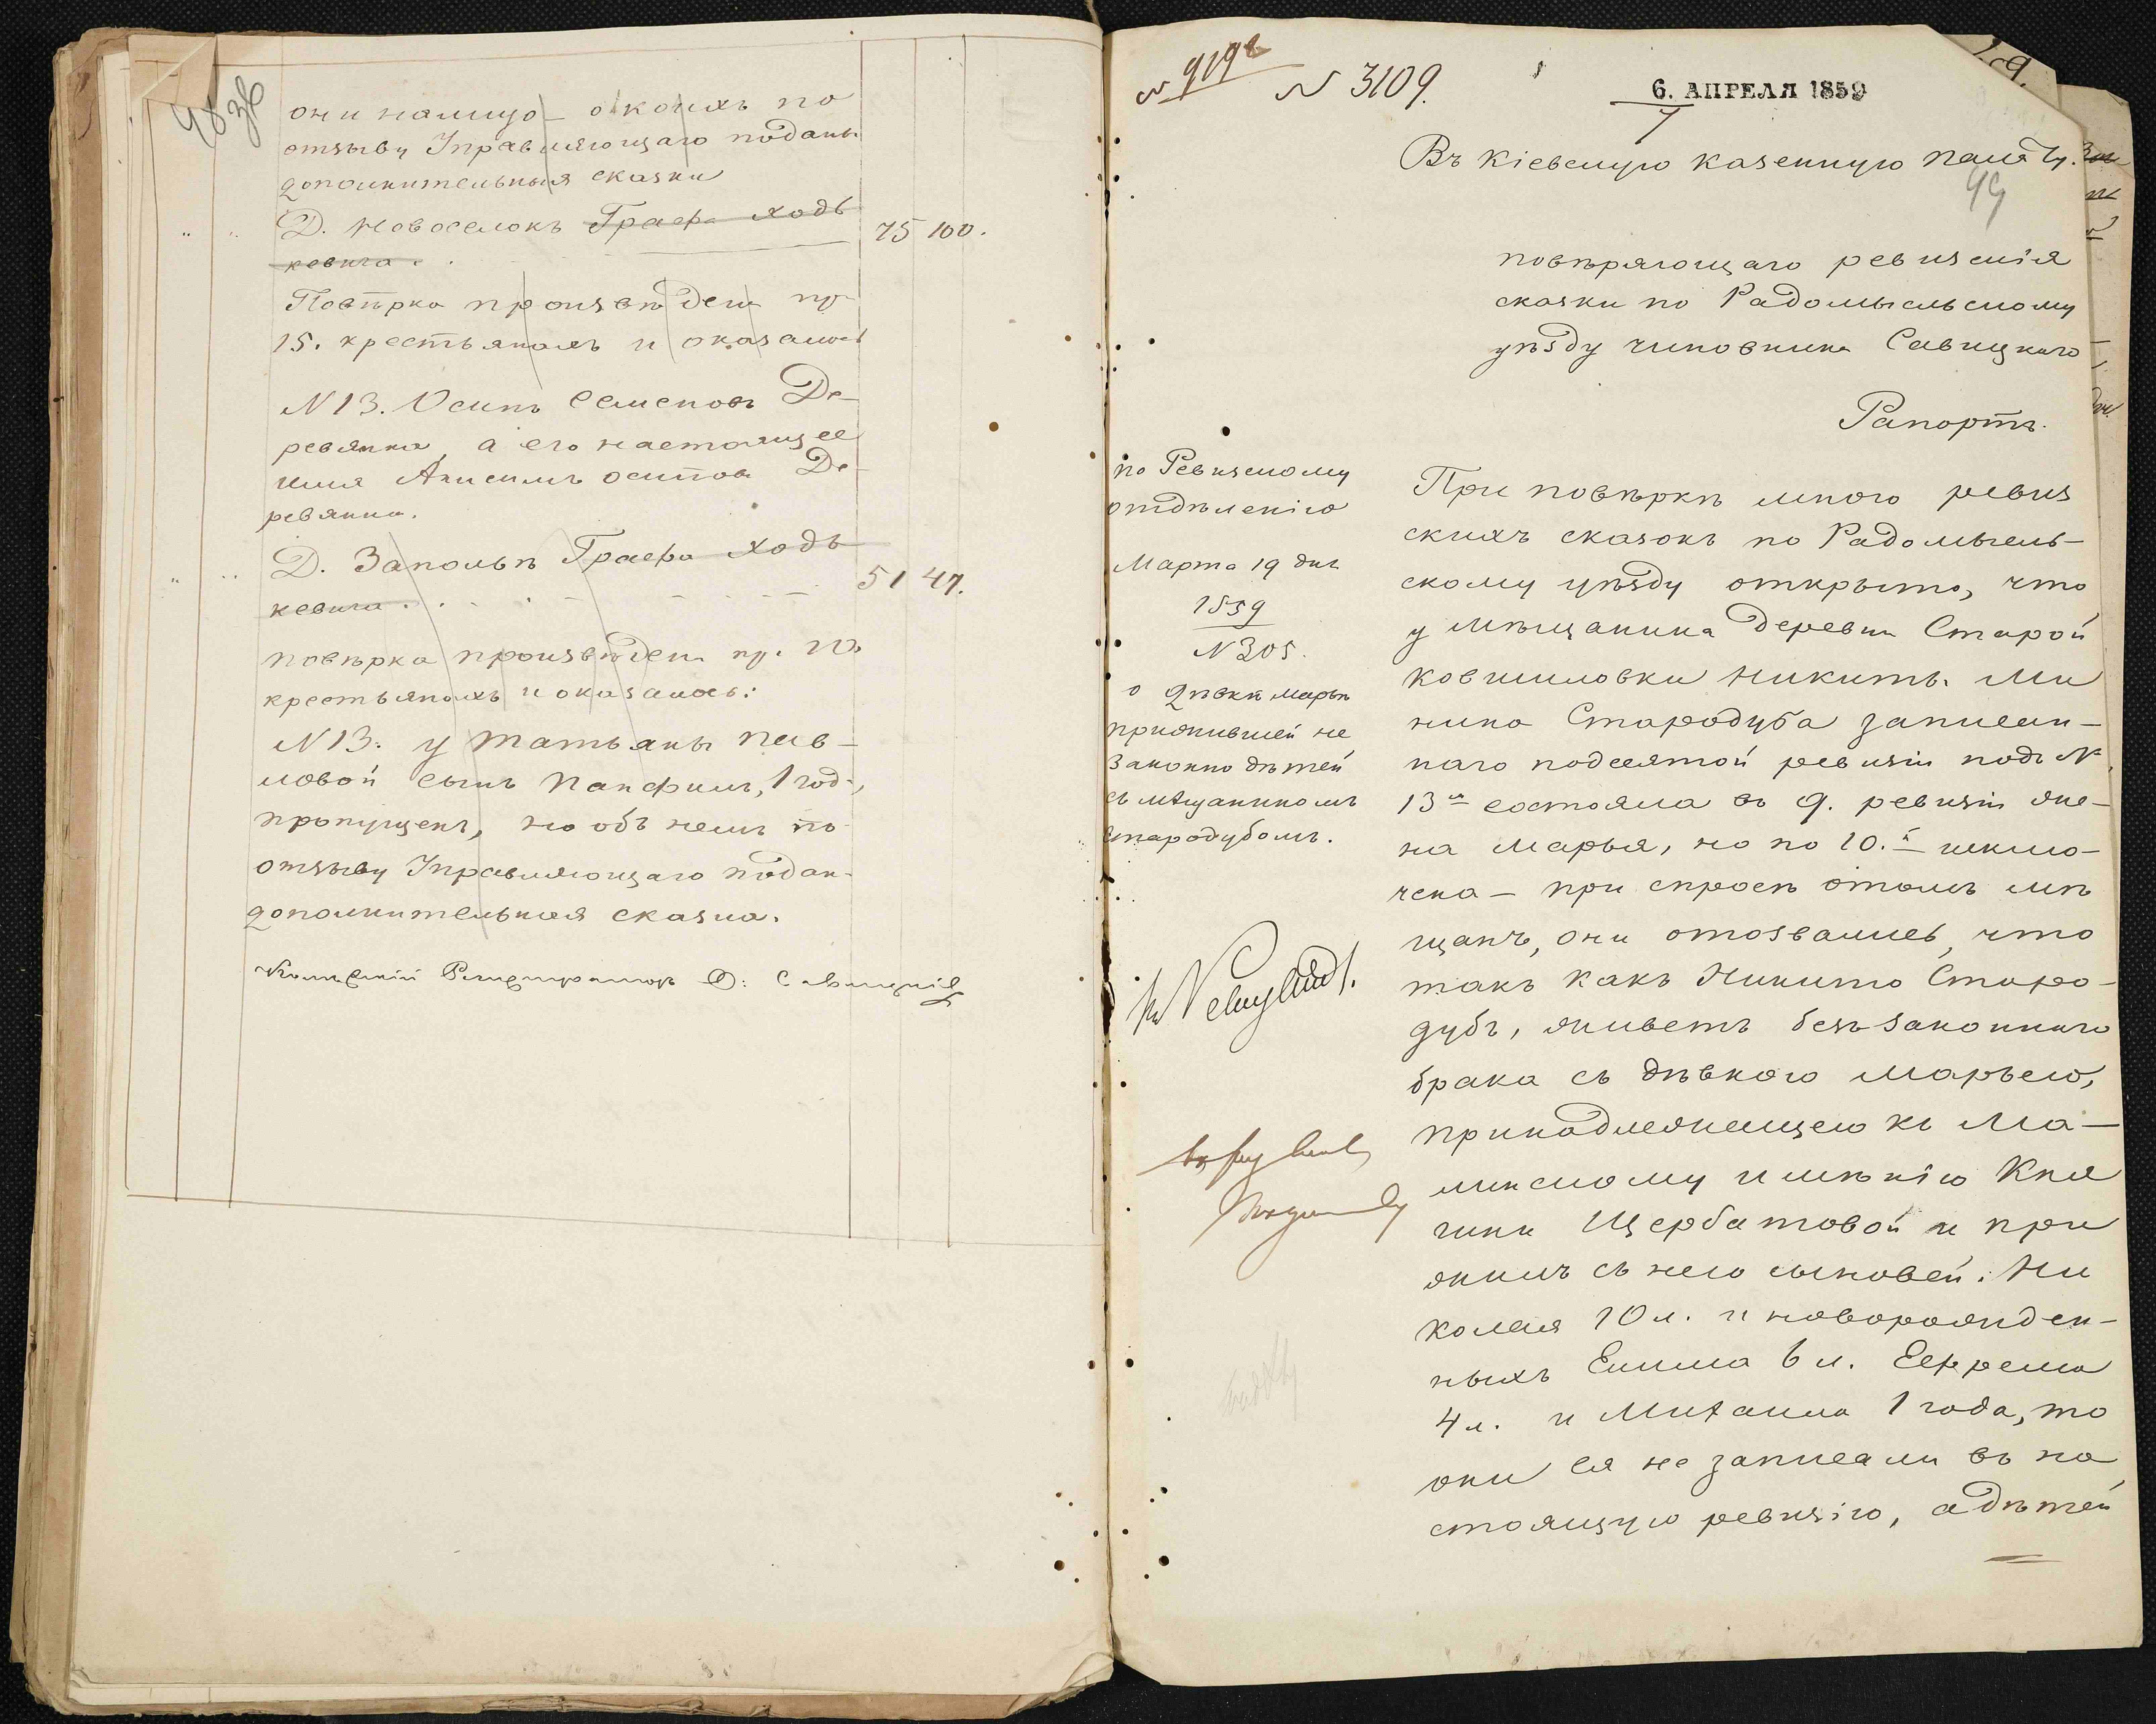 98 зв
они налицо — о коихъ по
отзыву Управляющаго поданы
дополнительныя сказки
Д. Новоселокъ Графа Ходь
кевича . . 75 100.
Повѣрка произвѣдена пр.
15. крестьянахъ и оказалось
N 13. Осипъ Семеновъ Де-
ревянка, а его настоящее
имя Анисимъ Осиповъ Де-
ревянка.
Д. Заполье Графа Ходь
кевича . . 51 47.
повѣрка произвѣдена пр. 10
крестьянахъ и оказалось:
N 13. у Татьяны Пав-
ловой сынъ Панфилъ, 1 года,
пропущенъ, но объ немъ по
отзыву Управляющаго подан-
дополнительная сказка.
Колежскій Регистраторъ Савицкій
N 919
N 3109.
6. АПРЕЛЯ 1859
7
Въ Кіевскую Казенную Палату.
99
повѣряющаго ревизскія
сказки по Радомысльскому
уѣзду чиновника Савицкаго
Рапортъ.
по Ревизскому
отдѣленію
Марта 19 дня
1859
N 305.
о дѣвкѣ Марьѣ
прижившей не
законно дѣтей
съ мѣщаниномъ
Стародубомъ.
При повѣркѣ мною ревиз
скихъ сказокъ по Радомысль-
скому уѣзду открыто, что
у мѣщанина деревни Старой
Ковшиловки Никиты Ми
нина Стародуба записан-
наго по десятой ревизіи подъ N
13м состояла въ 9. ревизіи же-
на Марья, но по 10.й исклю-
чена — при спросѣ о томъ мѣ
щанъ, они отозвались, что
такъ какъ Никита Старо-
дубъ, живетъ безъ законнаго
брака съ дѣвкою Марьею,
принадлежащею къ Ма-
линскому имѣнію Кня
гини Щербатовой и при
жилъ съ нею сыновей: Ни
колая 10 л. и новорожден-
ныхъ Емима 6 л. Ефрема
4 л. и Михаила 1 года, то
они ея не записали въ на
стоящую ревизію, а дѣтей